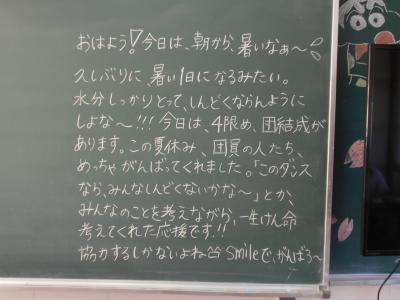 おはよう!今日は、朝から、暑いなぁ〜
久しぶりに、暑い1日になるみたい。
水分しっかりとって、しんどくならんように
しよな〜!!!今日は、4限め、団結成が
あります。この夏休み、団員の人たち、
めっちゃがんばってくれました。「このダンス
なら、みんなしんどくないかな〜」とか、
みんなのことを考えながら、一生けん命
考えてくれた応援です!!
協力するしかないよね smileで、がんばろ〜